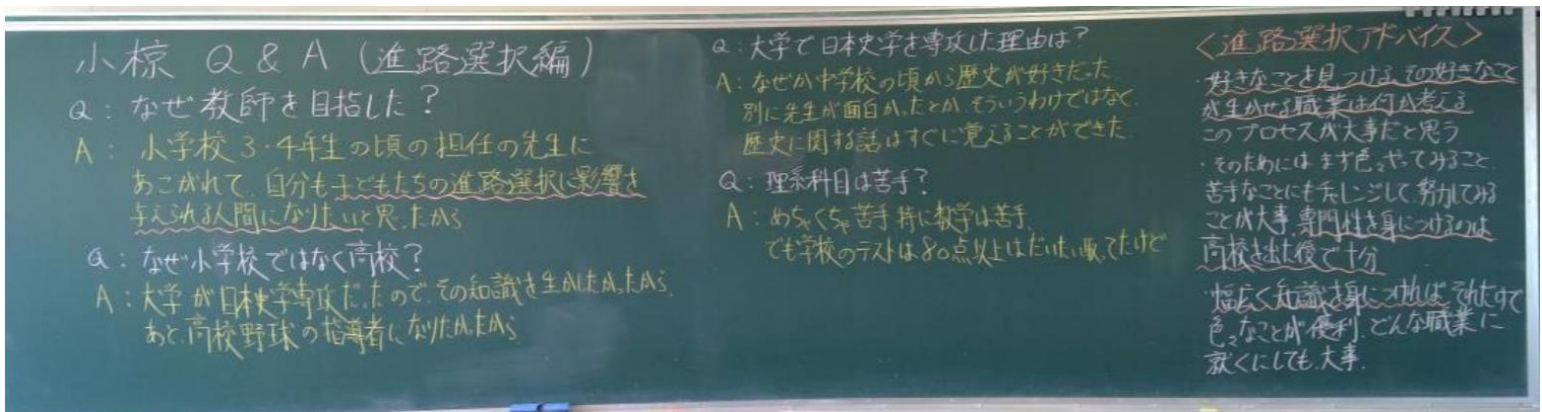 小椋 Q & A (進路選択編)
Q: なぜ教師を目指した?
A: 小学校3・4年生の頃の担任の先生に
あこがれて、自分も子どもたちの進路選択に影響を
与えられる人間になりたいと思ったから
Q: なぜ小学校ではなく高校?
A: 大学が日本史学専攻だったので、その知識を生かしたかったから、
あと、高校野球の指導者になりたかったから
Q: 大学で日本史学を専攻した理由は?
A: なぜか中学校の頃から歴史が好きだった
別に先生が面白かったとか、そういうわけではなく、
歴史に関する話はすぐに覚えることができた
Q: 理系科目は苦手?
A: めちゃくちゃ苦手 特に数学は苦手、
でも学校のテストは80点以上はだいたい取ってたけど
<進路選択アドバイス>
・好きなことを見つける、その好きなこと
が生かせる職業は何か考える
このプロセスが大事だと思う
・そのためにはまず色々やってみること、
苦手なことにもチャレンジして、努力してみる
ことが大事、専門性を身につけるのは
高校を出た後で十分
・幅広く知識を身につければ それだけで
色々なことが有利、どんな職業に
就くにしても大事、